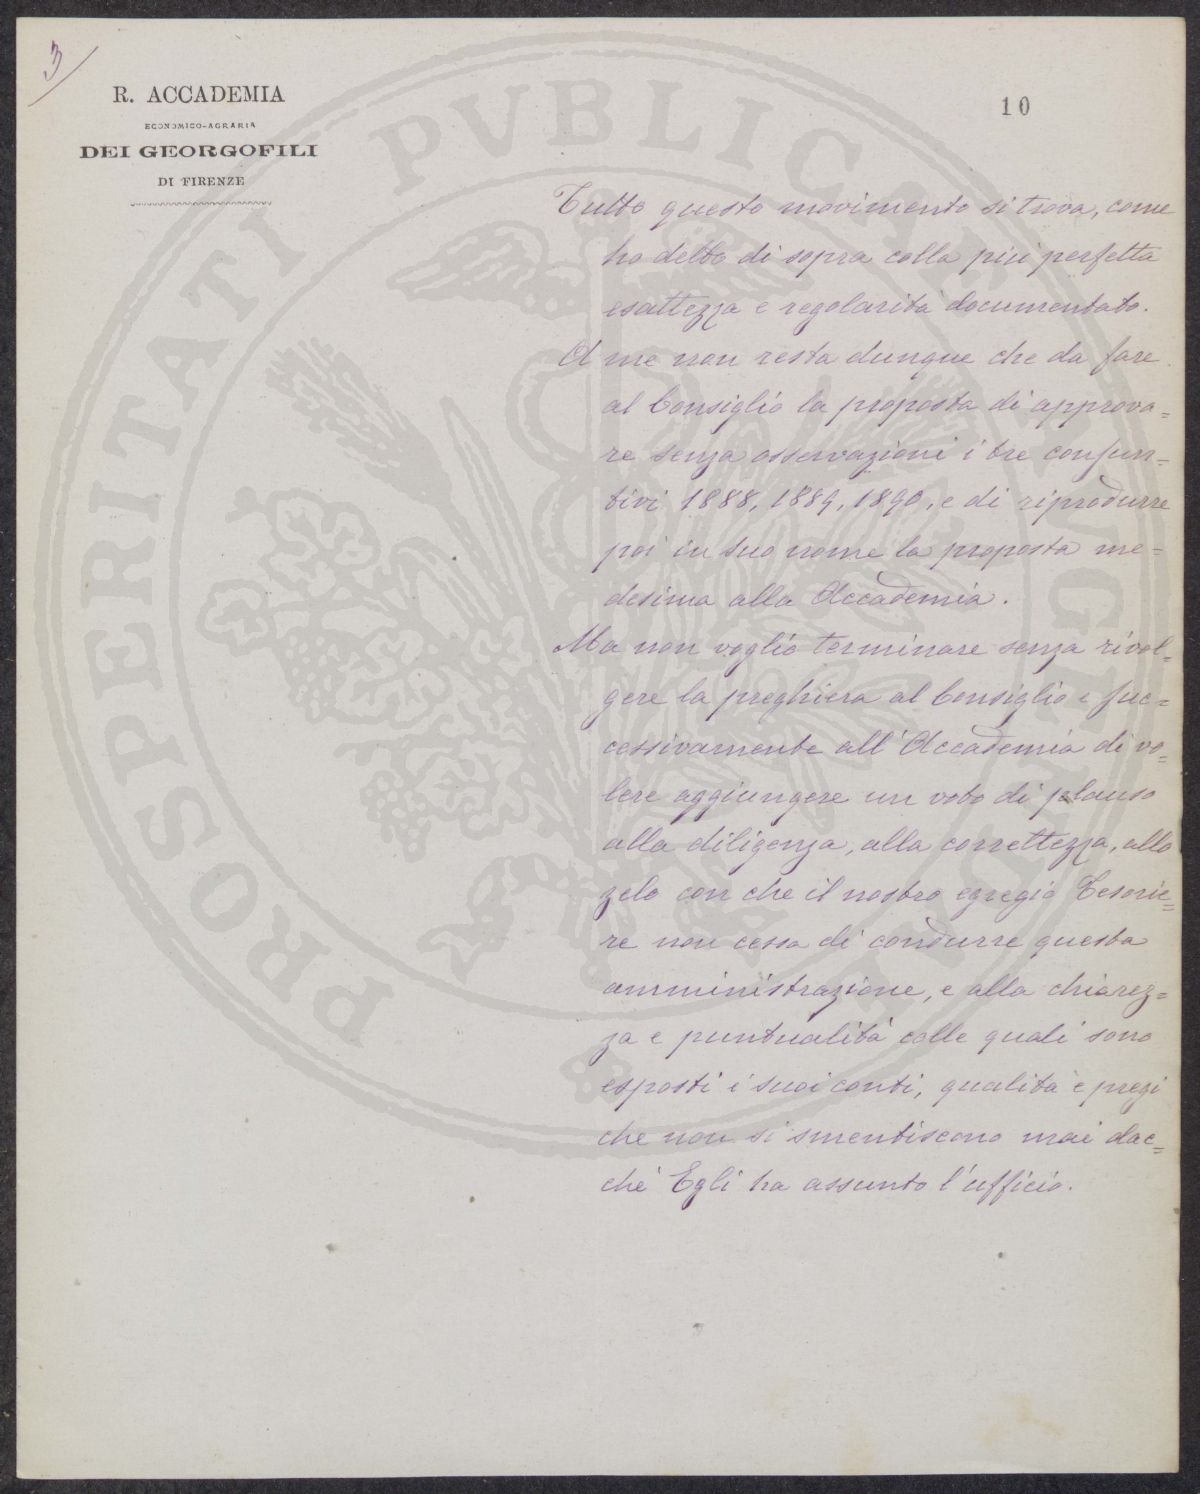 3
R. ACCADEMIA
ECONOMICO-AGRARIA
DEI GEORGOFILI
DI FIRENZE
10
PROSPERITATI PVBLICAE AVGENDAE
Tutto questo movimento si trova, come
ho detto di sopra colla più perfetta
esattezza e regolarità documentato.
A me non resta dunque che da fare
al Consiglio la proposta di approva=
re senza osservazioni i tre consun=
tivi 1888, 1889, 1890, e di riprodurre
poi in suo nome la proposta me=
desima alla Accademia.
Ma non voglio terminare senza rivol=
gere la preghiera al Consiglio e suc=
cessivamente all'Accademia di vo=
lere aggiungere un voto di plauso
alla diligenza, alla correttezza, allo
zelo con che il nostro egregio Tesorie=
re non cessa di condurre questa
amministrazione, e alla chiarez=
za e puntualità colle quali sono
esposti i suoi conti, qualità e pregi
che non si smentiscono mai dac=
ché Egli ha assunto l'ufficio.